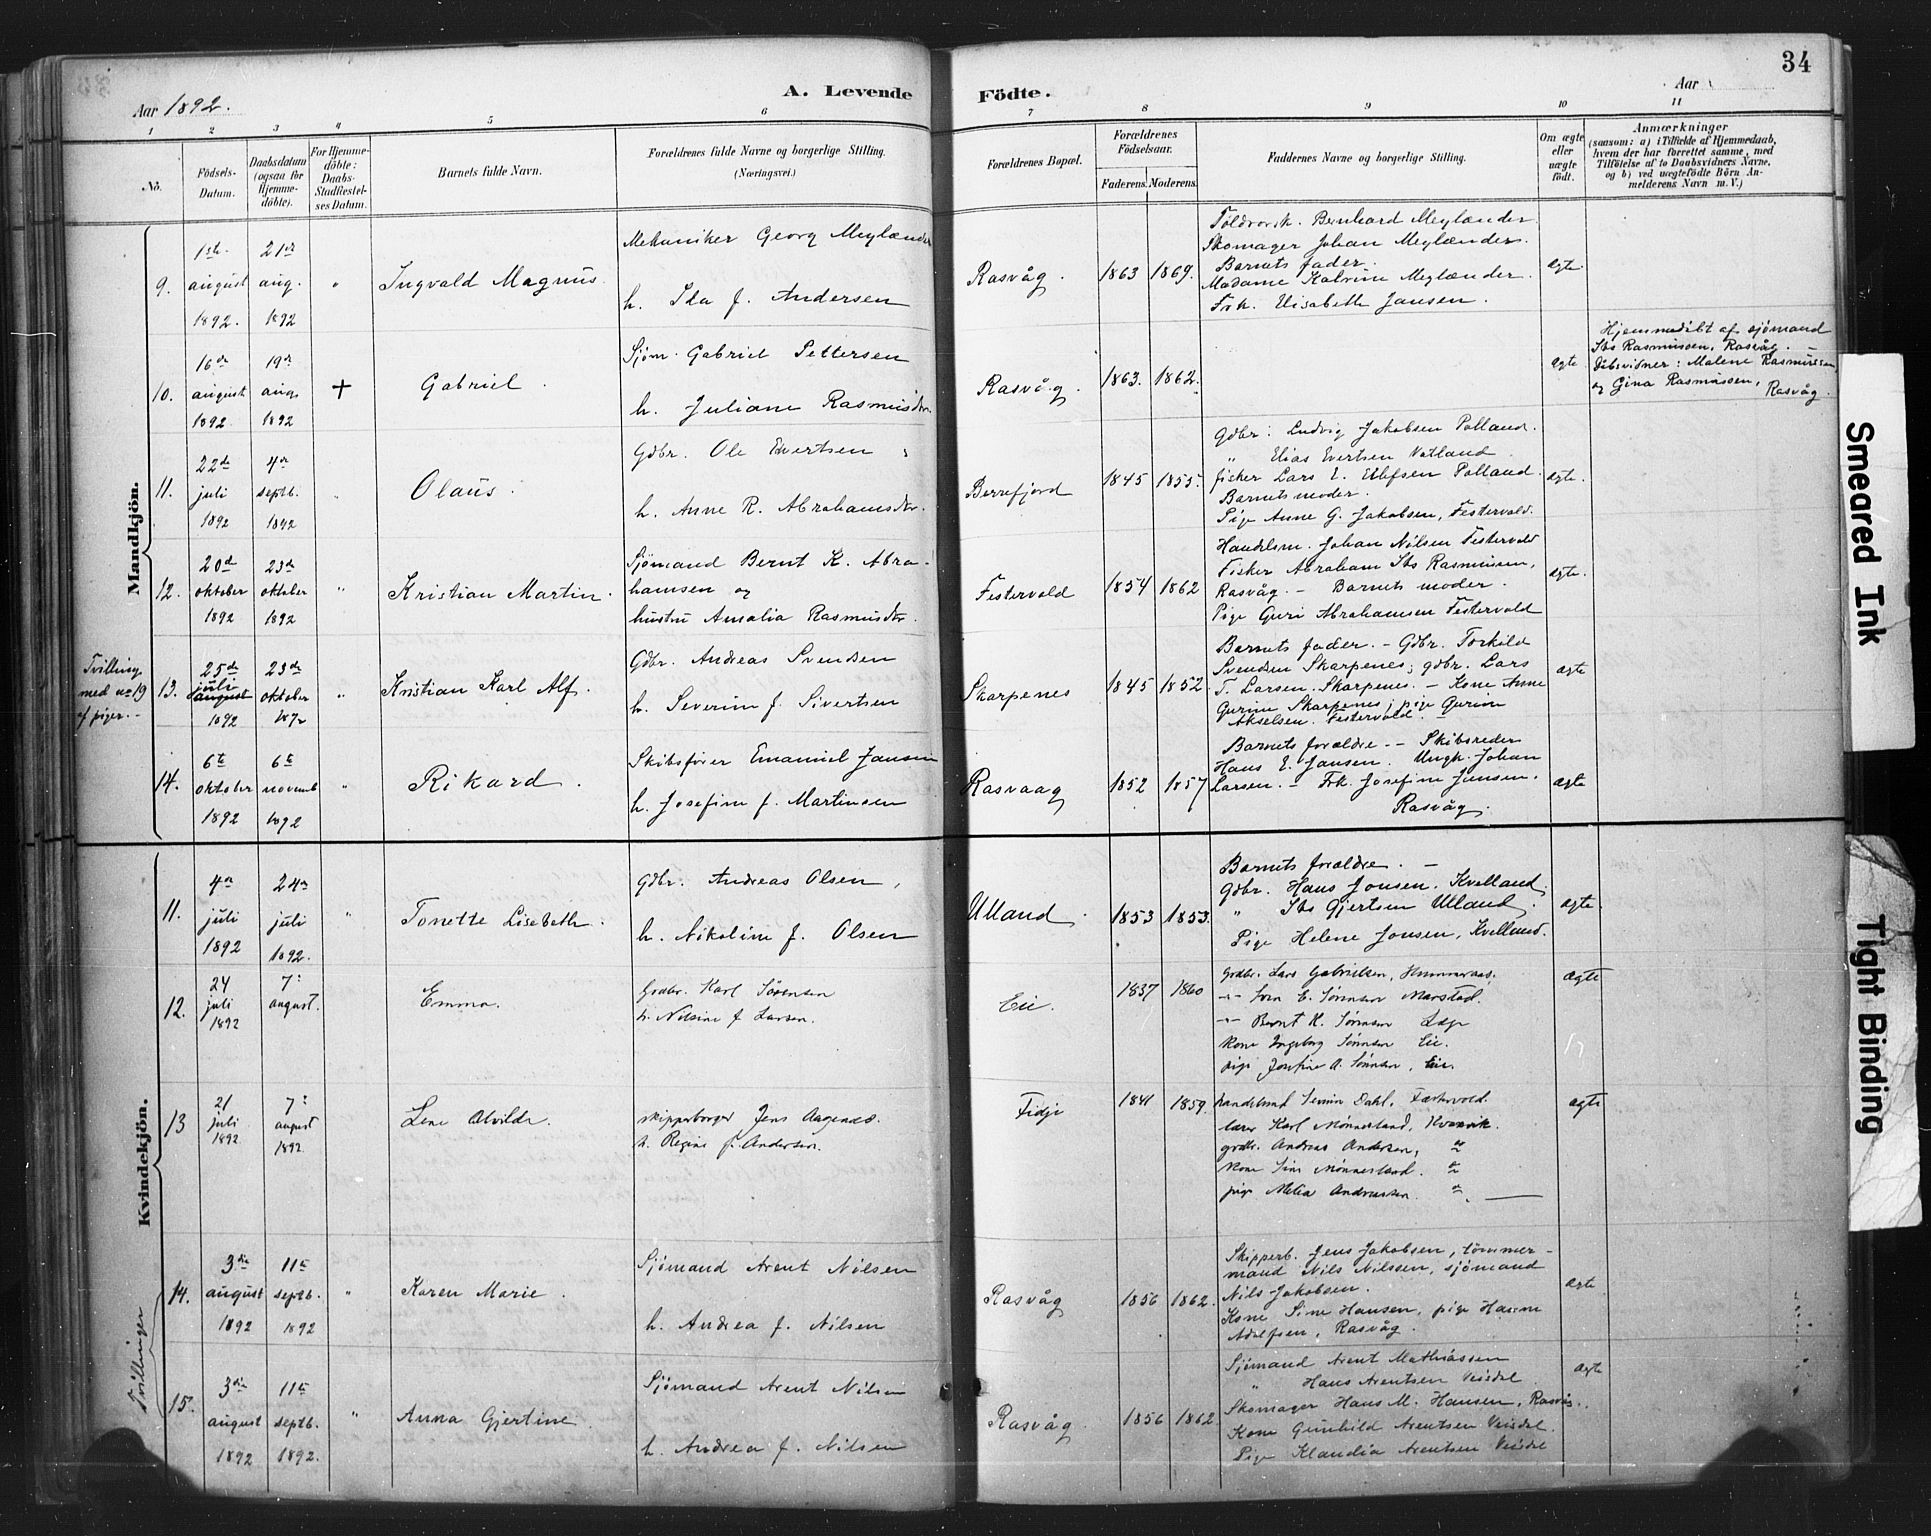 34
Aar 1892.
A. Levende Födte.
Aar
1 2 3 4 5 6 7 8 9 10 11
No.
Födsels-Datum.
Daabsdatum (ogsaa for Hjemme-döbte).
For Hjemme-döbte: Daabs-Stadfæstel-ses Datum.
Barnets fulde Navn.
Forældrenes fulde Navne og borgerlige Stilling.
(Næringsvei.)
Forældrenes Bopæl.
Forældrenes Födselsaar.
Faderens. Moderens.
Faddernes Navne og borgerlige Stilling.
Om ægte eller uægte födt.
Anmærkninger
(saasom: a) i Tilfælde af Hjemmedaab,
hvem der har forrettet samme, med
Tilföielse af to Daabsvidners Navne,
og b) ved uægtefödte Börn An-
melderens Navn m. V.)
Mandkjön.
9.
1ste august 1892.
21de aug. 1892
"
Ingvald Magnus.
Mekaniker Georg Meylænder
h. Ida f. Andersen
Rasvåg.
1863 1869.
Toldrorsk. Bernhard Meylænder
Skomager Johan Meylænder.
Barnets fader.
Madame Katrine Meylænder.
Frk. Elisabeth Jansen.
ægte.
10.
16de august 1892
19de aug. 1892
+
Gabriel.
Sjöm. Gabriel Pettersen
h. Juliane Rasmusdtr.
Rasvåg.
1863. 1862.
ægte
Hjemmedöbt af sjömand
Ibs Rasmussen, Rasvåg. –
Döbsvidner: Malene Rasmussen
og Gina Rasmussen,
Rasvåg.
11.
22de juli 1892
4de septb. 1892
"
Olaus.
Gdbr. Ole Evertsen
h. Anne R. Abrahamsdtr.
Berrefjord
1845 1855.
Gdbr: Ludvig Jakobsen Polland.
" Elias Evertsen Vatland
fisker Lars E. Ellefsen Polland.
Barnets moder.
Pige Anne G. Jakobsen, Festervold.
ægte.
12.
20de oktober 1892
23de oktober 1892
"
Kristian Martin.
Sjömand Bernt K. Abra-
hamsen og
hustru Amalia Rasmusdtr.
Festervold
1854 1862
Handelsm. Johan Nilsen Festervold
Fisker Abraham Ibs Rasmussen,
Rasvåg. – Barnets moder.
Pige Guri Abrahamsen Festervold
ægte.
Tvilling
med no 19
af piger. –
13.
25de juli august 1892
23de oktober 1892
"
Kristian Karl Alf.
Gdbr. Andreas Svendsen
h. Severine f. Sivertsen
Skarpenes
1845 1852.
Barnets fader. – Gdbr. Torkild
Svendsen Skarpenes; gdbr. Lars
T. Larsen. Skarpenes. – Kone Anne
Gurine Skarpenes; pige Gurine
Akselsen. Festervold. –
ægte
14.
6te oktober 1892
6te novemb 1892
"
Rikard.
Skibsförer Emanuel Jansen
h. Josefine f. Martinsen
Rasvaag
1852 1857
Barnets forældre. – Skibsreder
Hans E. Jansen. Ungk. Johan
Larsen. – Frk. Josefine Jansen.
Rasvåg.
ægte
Kvindekjön.
11.
4de juli 1892
24de juli 1892.
"
Tonette Lisebeth.
Gdbr. Andreas Olsen,
h. Nikoline f. Olsen
Ulland.
1853 1853.
Barnets forældre. –
Gdbr. Hans Jonsen. Kvelland.
" Ibs Gjertsen Ulland.
Pige Helene Jonsen, Kvelland.
ægte
12.
24 juli 1892
7: august.
Emma.
Grdbr. Karl Sörensen
h. Nilsine f Larsen.
Eie.
1837 1860
Grdbr. Lars Gabrielsen,
–"– Sören E. Sörensen Marstad.
–"– Bernt K. Sörensen
Kone Ingeborg Sörensen Eie.
pige Josefine A. Sörensen, Eie.
ægte
13
21 juli 1892
7: august 1892
Lene Alvilde.
skipperborger Jens Aagesen.
h. Regine f. Andersen.
Fidje
1841 1859.
handelsmd Dahl, Festervold.
lærer Karl Mönnesland, Kvanvik.
grdbr. Andreas Andersen, "
Kone Sine Mönnesland. "
pige Melia Andreassen. " –
ægte
Tvillinger
14.
3die august 1892
11te septb. 1892
"
Karen Marie.
Sjömand Arent Nilsen
h. Andrea f. Nilsen
Rasvåg
1856 1862.
Skipperb. Jens Jakobsen, tömmer-
mand Nils Nilssen, sjömand
Nils Jakobsen.
Kone Sine Hansen, pige Hanne
Adolfsen, Rasvåg.
ægte
15.
3die august 1892
11te septb. 1892.
"
Anna Gjertine.
Sjömand Arent Nilsen
h. Andrea f. Nilsen
Rasvåg.
1856 1862.
Sjömand Arent Mathiassen
" Hans Arentsen Veisdal
Skomager Hans M. Hansen, Rasvåg.
Kone Gunhild Arentsen Veisdal.
Pige Klandia Arentsen Veisdal
ægte
Smeared Ink
Tight Binding